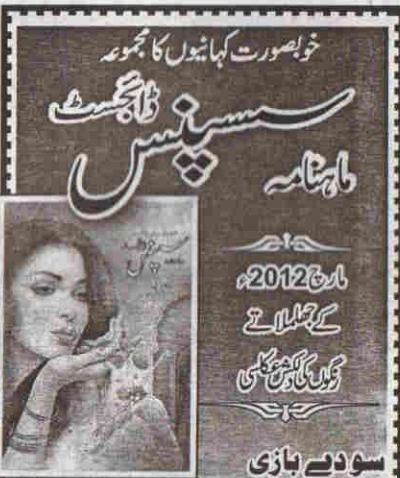 خوبصورت کہانیوں کا مجموعہ
ماہنامہ سسپنس ڈائجسٹ
مارچ 2012ء
کے جھلملاتے
رنگوں کی دلکش عکاسی
سودے بازی
سسپنس